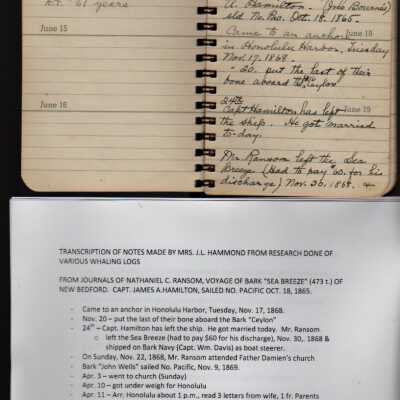 E.T. 61 years
June 15
June 16
A. Hamilton - (Jno Bourne's)
sld No. Pac. Oct. 18. 1865.
Came to an anchor June 18
in Honolulu Harbor, Tuesday
Nov. 17. 1868.
- 20. put the last of their
bone aboard the Ceylon
24th
Capt Hamilton has left June 19
the ship. He got married
to-day.
Mr. Ransom left the Sea
Breeze (Had to pay 60. for his
discharge) Nov. 30. 1868.
TRANSCRIPTION OF NOTES MADE BY MRS. J.L. HAMMOND FROM RESEARCH DONE OF
VARIOUS WHALING LOGS
FROM JOURNALS OF NATHANIEL C. RANSOM, VOYAGE OF BARK "SEA BREEZE" (473 t.) OF
NEW BEDFORD. CAPT. JAMES A.HAMILTON, SAILED NO. PACIFIC OCT. 18, 1865.
- Came to an anchor in Honolulu Harbor, Tuesday, Nov. 17, 1868.
- Nov. 20 – put the last of their bone aboard the Bark "Ceylon"
- 24th – Capt. Hamilton has left the ship. He got married today. Mr. Ransom
o left the Sea Breeze (had to pay $60 for his discharge), Nov. 30,, 1868 &
shipped on Bark Navy (Capt. Wm. Davis) as boat steerer.
- On Sunday, Nov. 22, 1868, Mr. Ransom attended Father Damien's church
- Bark "John Wells" sailed No. Pacific, Nov. 9, 1869.
- Apr. 3 – went to church (Sunday)
- Apr. 10 – got under weigh for Honolulu
- Apr. 11 – Arr. Honolulu about 1 p.m., read 3 letters from wife, 1 fr. Parents